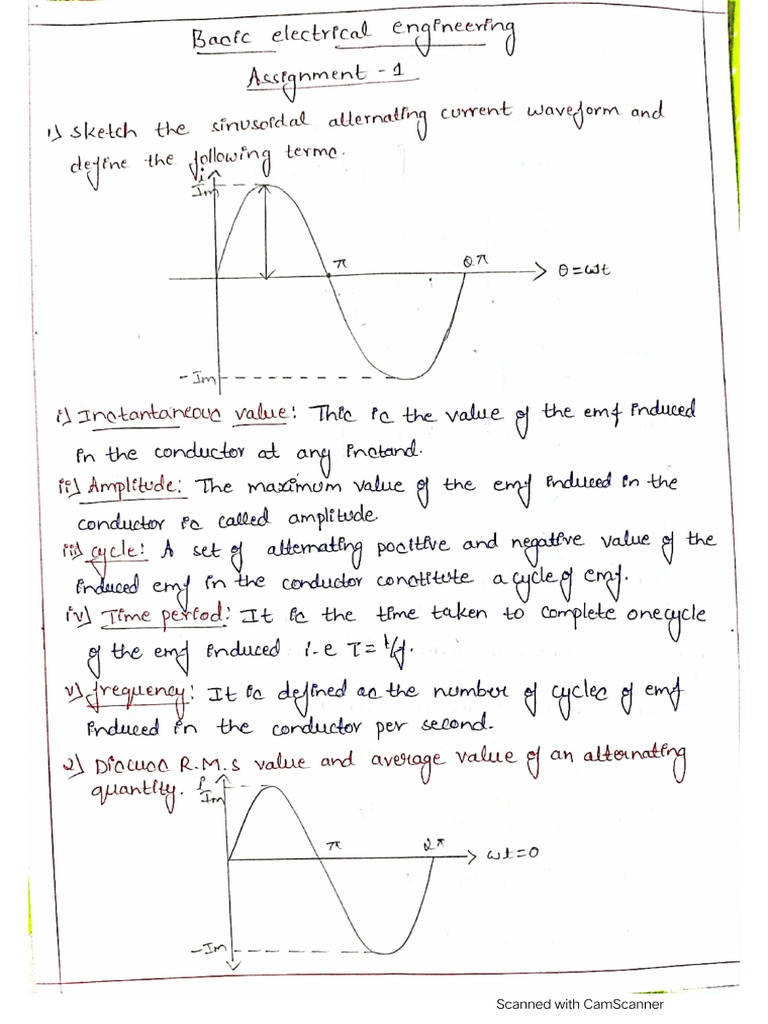 Basic electrical engineering
Assignment - 1
1) Sketch the sinusoidal alternating current waveform and
define the following terms.
i
Im
π
2π
θ = ωt
-Im
i) Instantaneous value: This is the value of the emf induced
in the conductor at any instand.
ii) Amplitude: The maximum value of the emf induced in the
conductor is called amplitude.
iii) cycle: A set of alternating positive and negative value of the
induced emf in the conductor constitute a cycle of emf.
iv) Time period: It is the time taken to complete one cycle
of the emf induced i.e T = 1/f.
v) frequency: It is defined as the number of cycles of emf
induced in the conductor per second.
2) Discuss R.M.S value and average value of an alternating
quantity.
i
Im
π
2π
ωt=0
-Im
Scanned with CamScanner